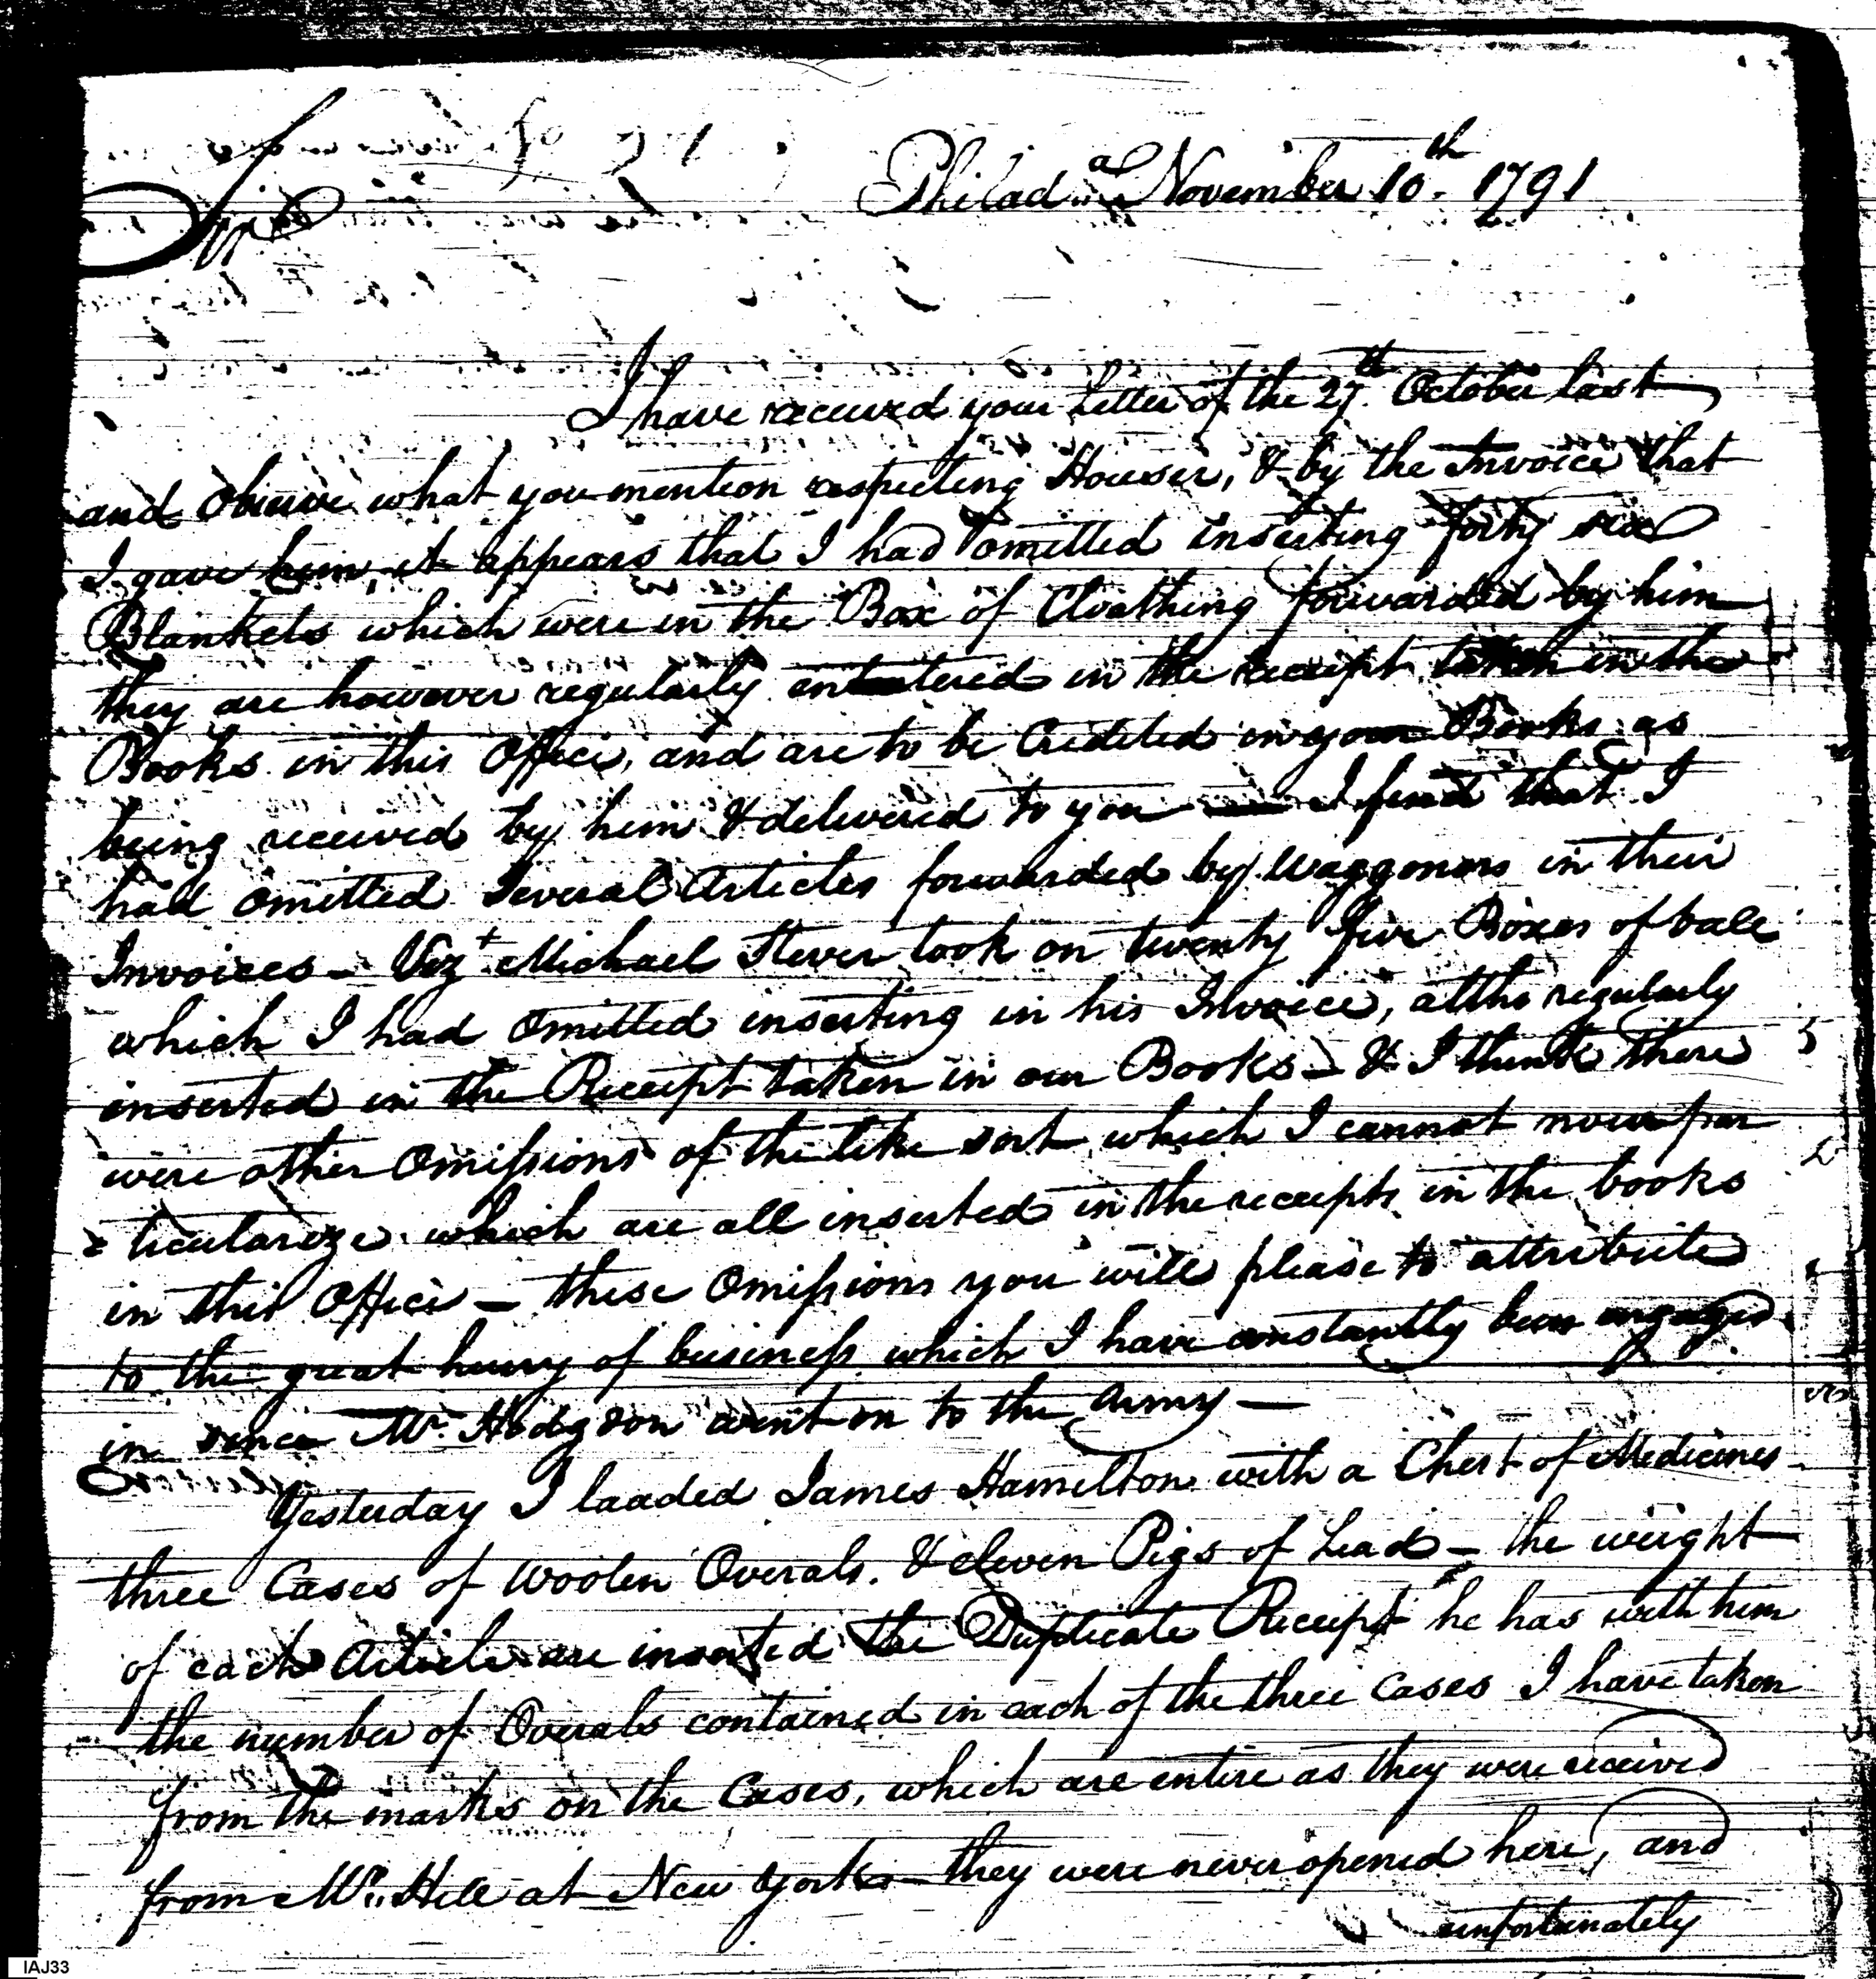 Philad.a November 10th. 1791
Sir
I have received your Letter of the 27th. October last
and observe what you mention respecting Houser, & by the Invoice that
I gave him, it appears that I had omitted inserting forty six
Blankets which were in the Box of Cloathing forwarded by him
they are however regularly entered in the receipt taken in the
Books in this Office, and are to be Credited in your Books as
being received by him & delivered to you — I find that I
had omitted Several Articles forwarded by Waggoners in their
Invoices – Vizt Michael Stever took on twenty five Boxes of ball
which I had omitted inserting in his Invoice, altho regularly
inserted in the Receipt taken in our Books – & I think there
were other Omissions of the like sort which I cannot now par
= ticularize which are all inserted in the receipts in the books
in this Office – these Omissions you will please to attribute
to the great hurry of business which I have constantly been engaged
in since Mr. Hodgson went on to the Army —
Yesterday I loaded James Hamilton with a Chest of Medicines
three Cases of Woolen Overals. & eleven Pigs of Lead – the weight
of each Article are inserted the Duplicate Receipt he has with him
the number of Overals contained in each of the three Cases I have taken
from the marks on the Cases, which are entire as they were received
from Mr. Hill at New York – they were never opened here, and
unfortunately
IAJ33